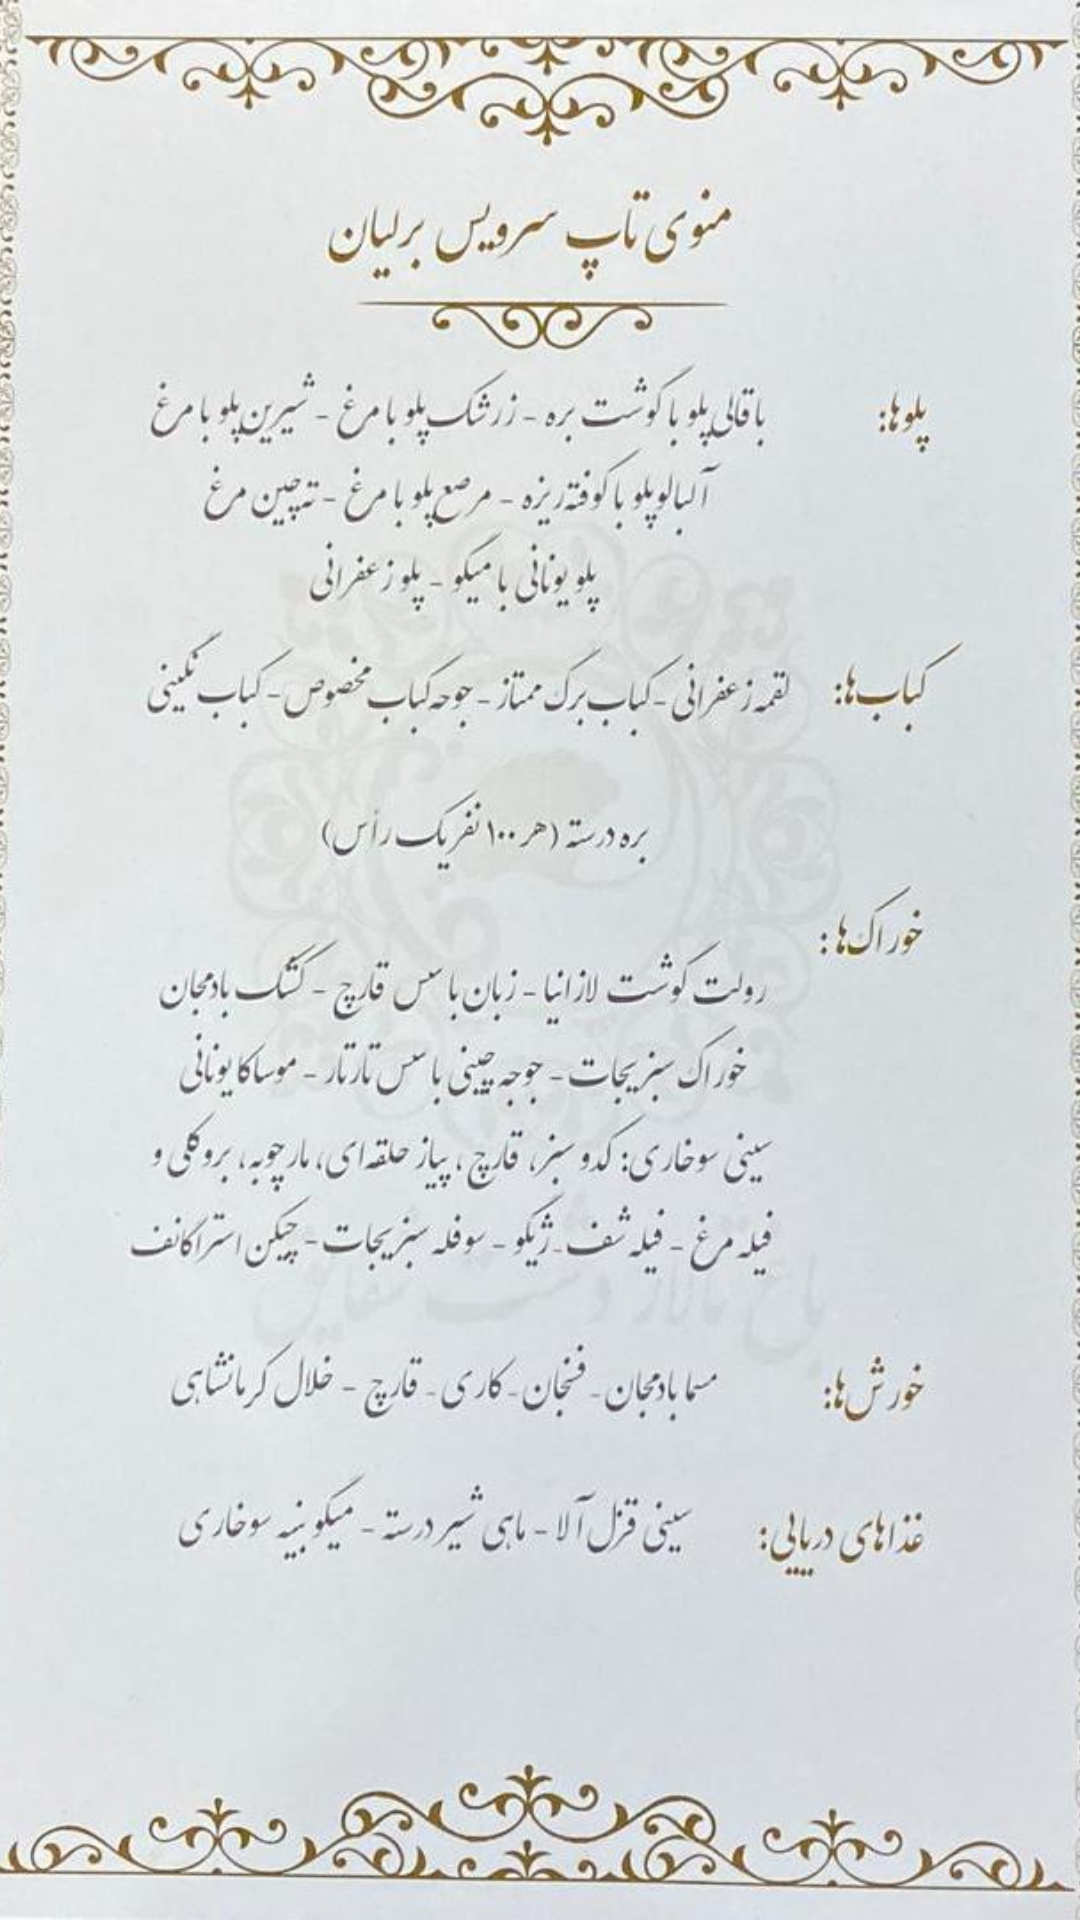 منوی تاپ سرویس برلیان
پلوها: باقالی پلو با گوشت بره - زرشک پلو با مرغ - شیرین پلو با مرغ
آلبالو پلو با کوفته ریزه - مرصع پلو با مرغ - ته چین مرغ
پلو یونانی با میگو - پلو زعفرانی
کباب‌ها: لقمه زعفرانی - کباب برگ ممتاز - جوجه کباب مخصوص - کباب نگینی
بره درسته (هر ۱۰۰ نفر یک رأس)
خوراک‌ها:
رولت گوشت لازانیا - زبان با سس قارچ - کشک بادمجان
خوراک سبزیجات - جوجه چینی با سس تارتار - موساکا یونانی
سینی سوخاری: کدو سبز، قارچ، پیاز حلقه‌ای، مارچوبه، بروکلی و
فیله مرغ - فیله شف - ژیگو - سوفله سبزیجات - چیکن استراگانف
خورش‌ها: مسما بادمجان - فسنجان - کاری - قارچ - خلال کرمانشاهی
غذاهای دریایی: سینی قزل آلا - ماهی شیر درسته - میگو پنیه سوخاری
باغ تالار دشت شقایق